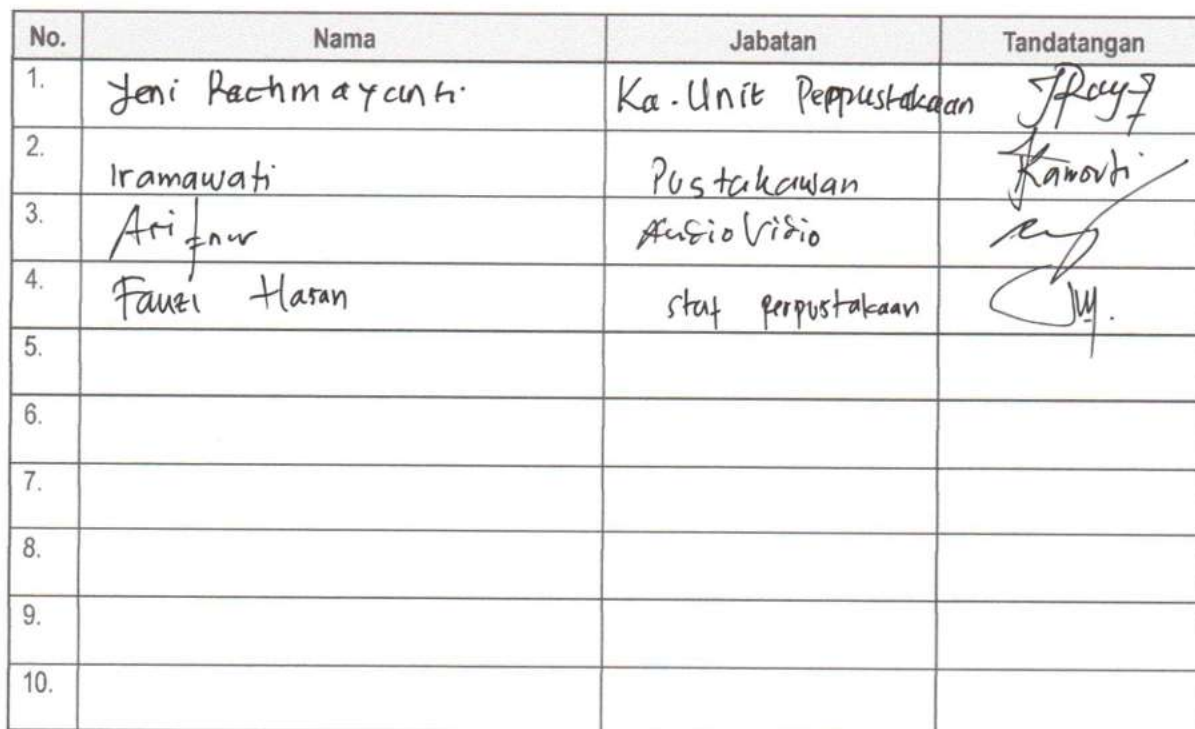 No. Nama Jabatan Tandatangan
1. Jeni Rachmayanti Ka. Unit Peppustakaan
2. Iramawati Pustakawan
3. Arifnur Audio Vidio
4. Fauzi Hasan staf perpustakaan
5.
6.
7.
8.
9.
10.